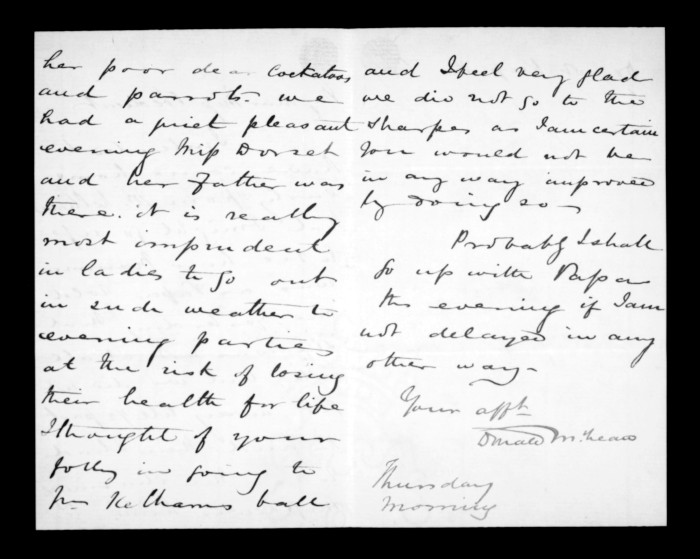 her poor dear Cockatoos
and parrots. we
had a quiet pleasant
evening Miss Dorset
and her Father was
there. it is really
most imprudent
in ladies to go out
in such weather to
evening parties
at the risk of losing
their health for life
I thought of your
folly in going to
Mrs Kelhams ball
and I feel very glad
we did not go to the
Sharpes as I am certain
you would not be
in any way improved
by doing so -
Probably I shall
go up with Papa
this evening if I am
not delayed in any
other way -
Your afft
Donald McLean
Thursday
Morning